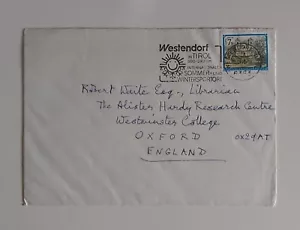 Westendorf
in TIROL
SOMMER- und
WINTERSPORTORT
Robert Waite Esq., Librarian
The Alister Hardy Research Centre
Westminster College
OXFORD OX2 9AT
ENGLAND